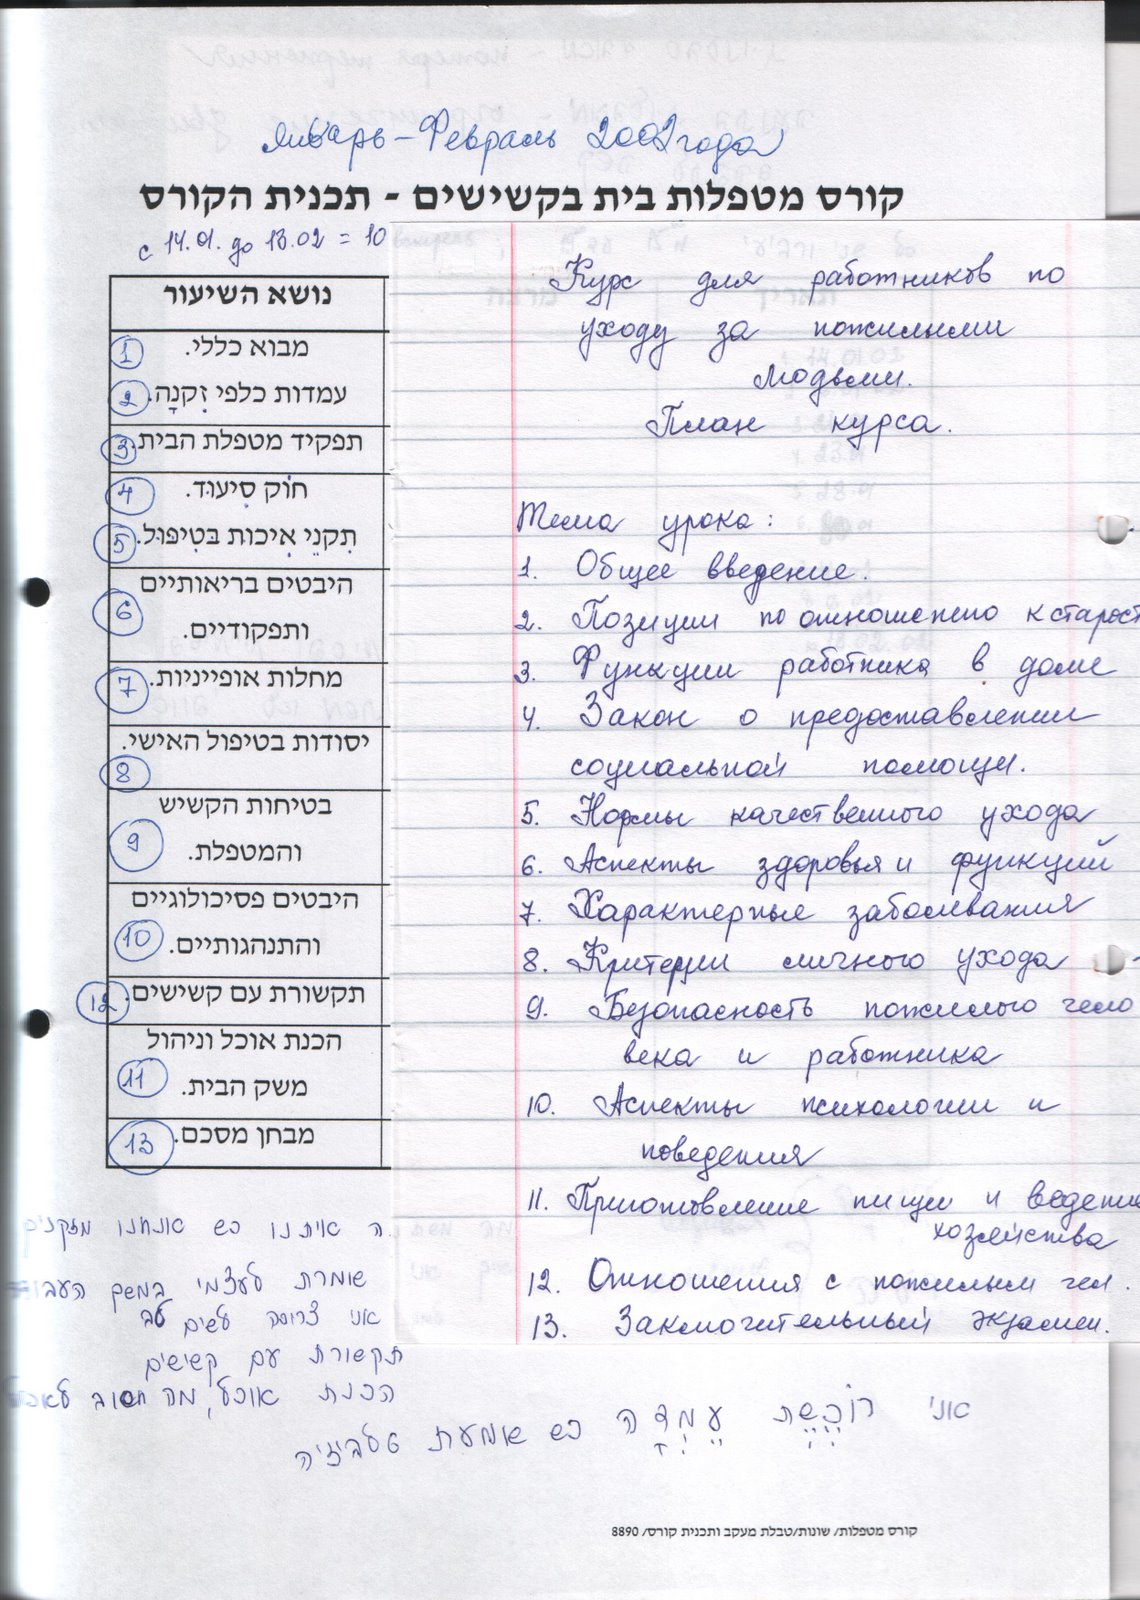 Январь-Февраль 2002 года
קורס מטפלות בית בקשישים - תכנית הקורס
с 14.01. до 13.02 = 10
נושא השיעור
1 מבוא כללי.
2 עמדות כלפי זִקנָה.
3 תפקיד מטפלת הבית.
4 חוֹק סִיעוּד.
5 תִקנֵי אִיכות בטִיפול.
6 היבטים בריאותיים
ותפקודיים.
7 מחלות אופייניות.
יסודות בטיפול האישי.
8
בטיחות הקשיש
9 והמטפלת.
היבטים פסיכולוגיים
10 והתנהגותיים.
12 תקשורת עם קשישים.
הכנת אוכל וניהול
11 משק הבית.
13 מבחן מסכם.
Курс для работников по
уходу за пожилыми
людьми.
План курса.
Тема урока:
1. Общее введение.
2. Позиции по отношению к старост
3. Функции работника в доме
4. Закон о предоставлении
социальной помощи.
5. Нормы качественного ухода
6. Аспекты здоровья и функций
7. Характерные заболевания
8. Критерии личного ухода
9. Безопасность пожилого чело
века и работника
10. Аспекты психологии и
поведения
11. Приготовление пищи и ведение
хозяйства
12. Отношения с пожилым чел.
13. Заключительный экзамен.
ה איתנו כש אנחנו מזקנים
שומרת לעצמי במשק העבו
אני צריכה לשים לב
תקשורת עם קשישים
הכנת אוכל, מה חשוב לאכול
אני רוֹכֶשֶת עֶמְדָה כש שומעת טלביזיה
קורס מטפלות/ שונות/טבלת מעקב ותכנית קורס/ 8890